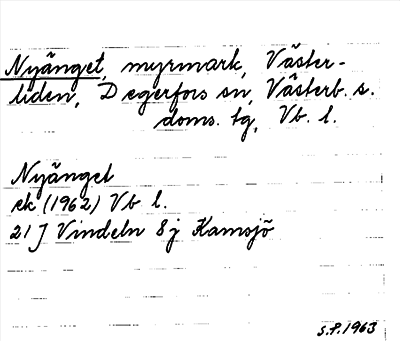 Nyänget, myrmark, Väster-
liden, Degerfors sn, Västerb. s.
doms. tg, Vb. l.
Nyänget
ek (1962) Vb l.
21 J Vindeln 8 j Kamsjö
S.P. 1963